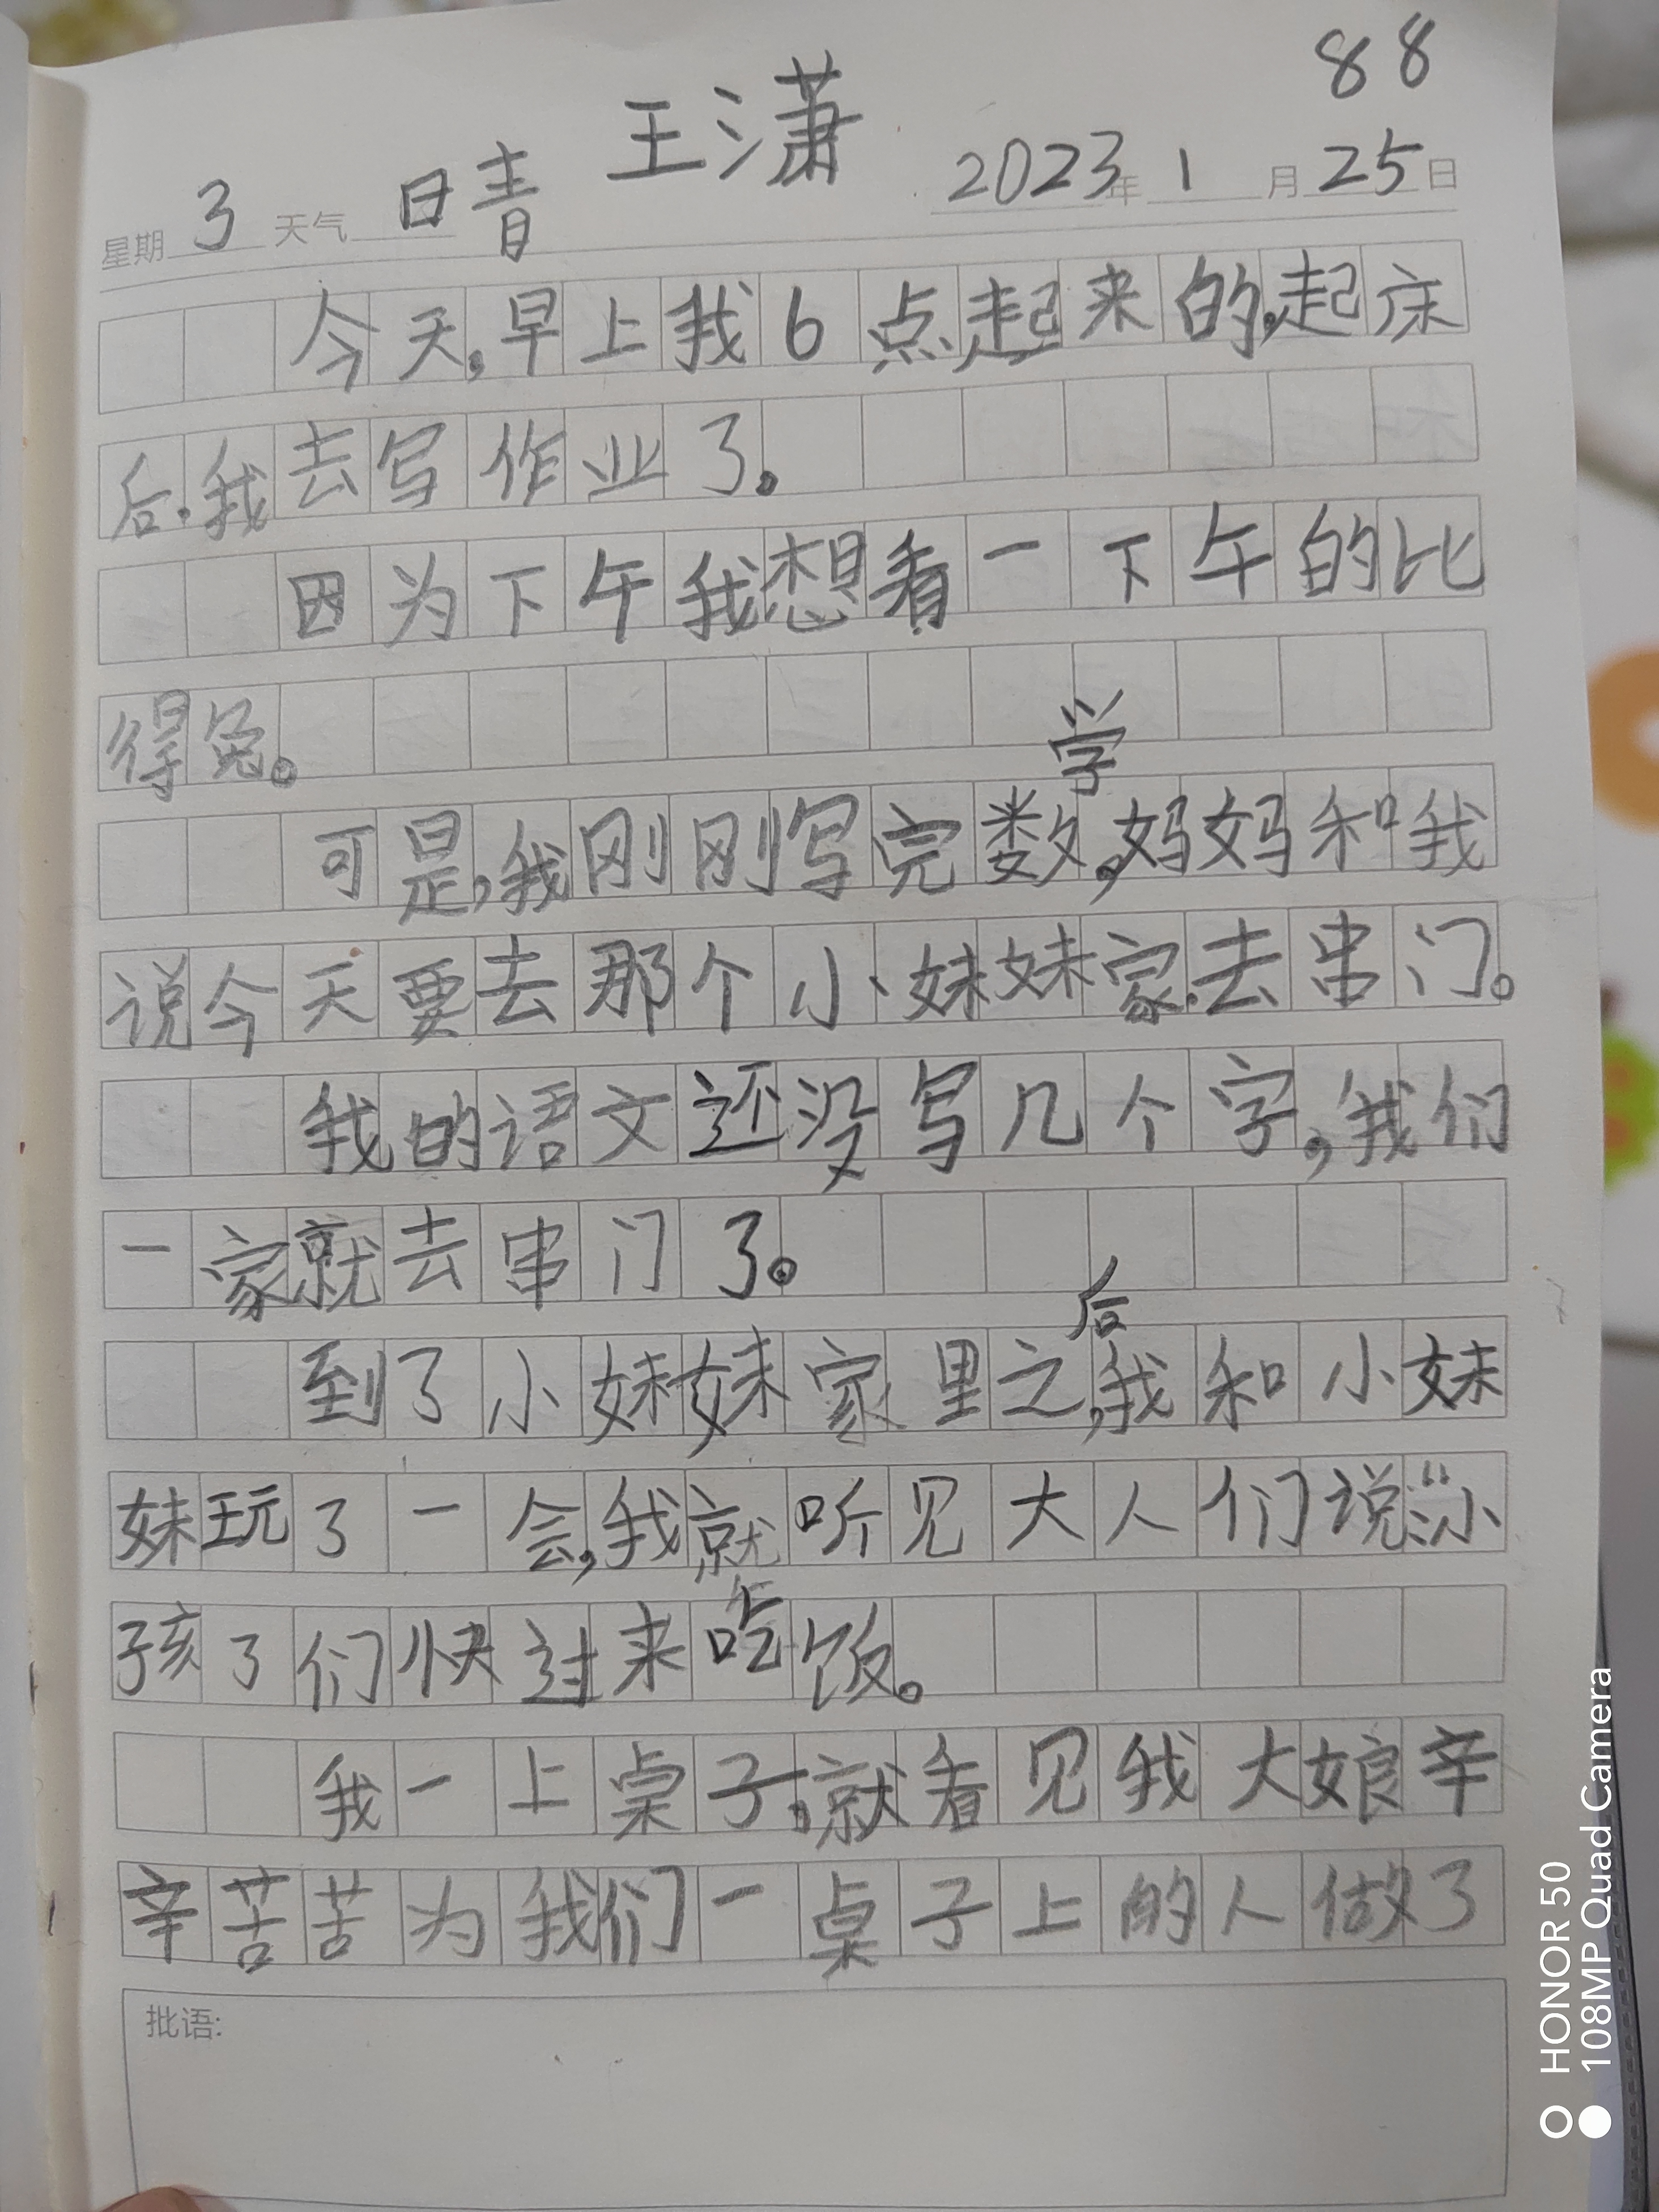 88
王潇
星期 3 天气 晴 2023年 1 月 25 日
今天,早上我6点起来的,起床
后,我去写作业了。
因为下午我想看一下午的比
得兔。
可是,我刚刚写完数学,妈妈和我
说今天要去那个小妹妹家,去串门。
我的语文还没写几个字,我们
一家就去串门了。
到了小妹妹家里之后,我和小妹
妹玩了一会,我就听见大人们说:“小
孩了们快过来吃饭。
我一上桌子,就看见我大娘辛
辛苦苦为我们一桌子上的人做了
批语:
HONOR 50
108MP Quad Camera